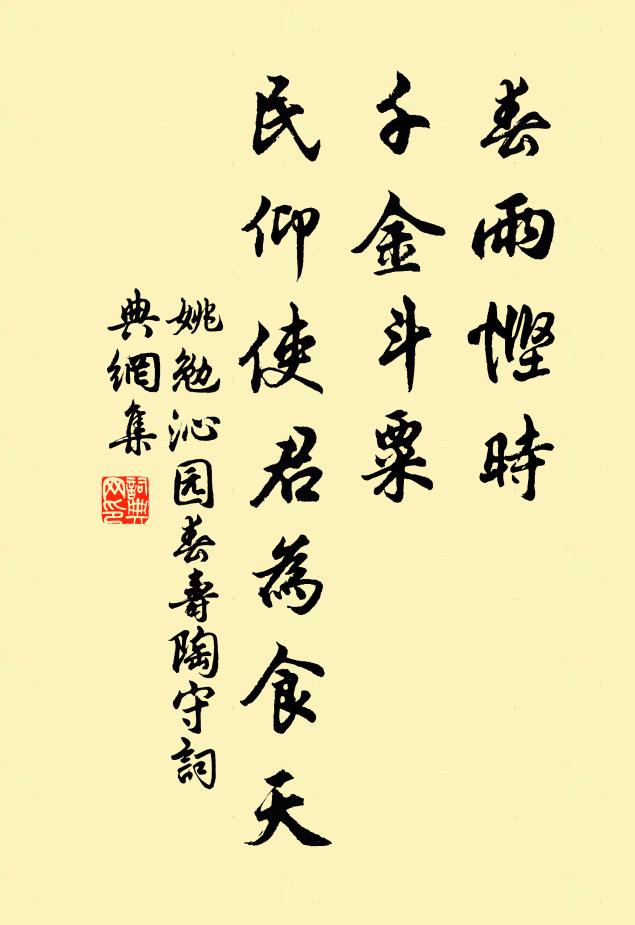 春雨慳時
千金斗粟
民仰使君為食天
姚勉沁园春壽陶守詞
典網集
詞典網印